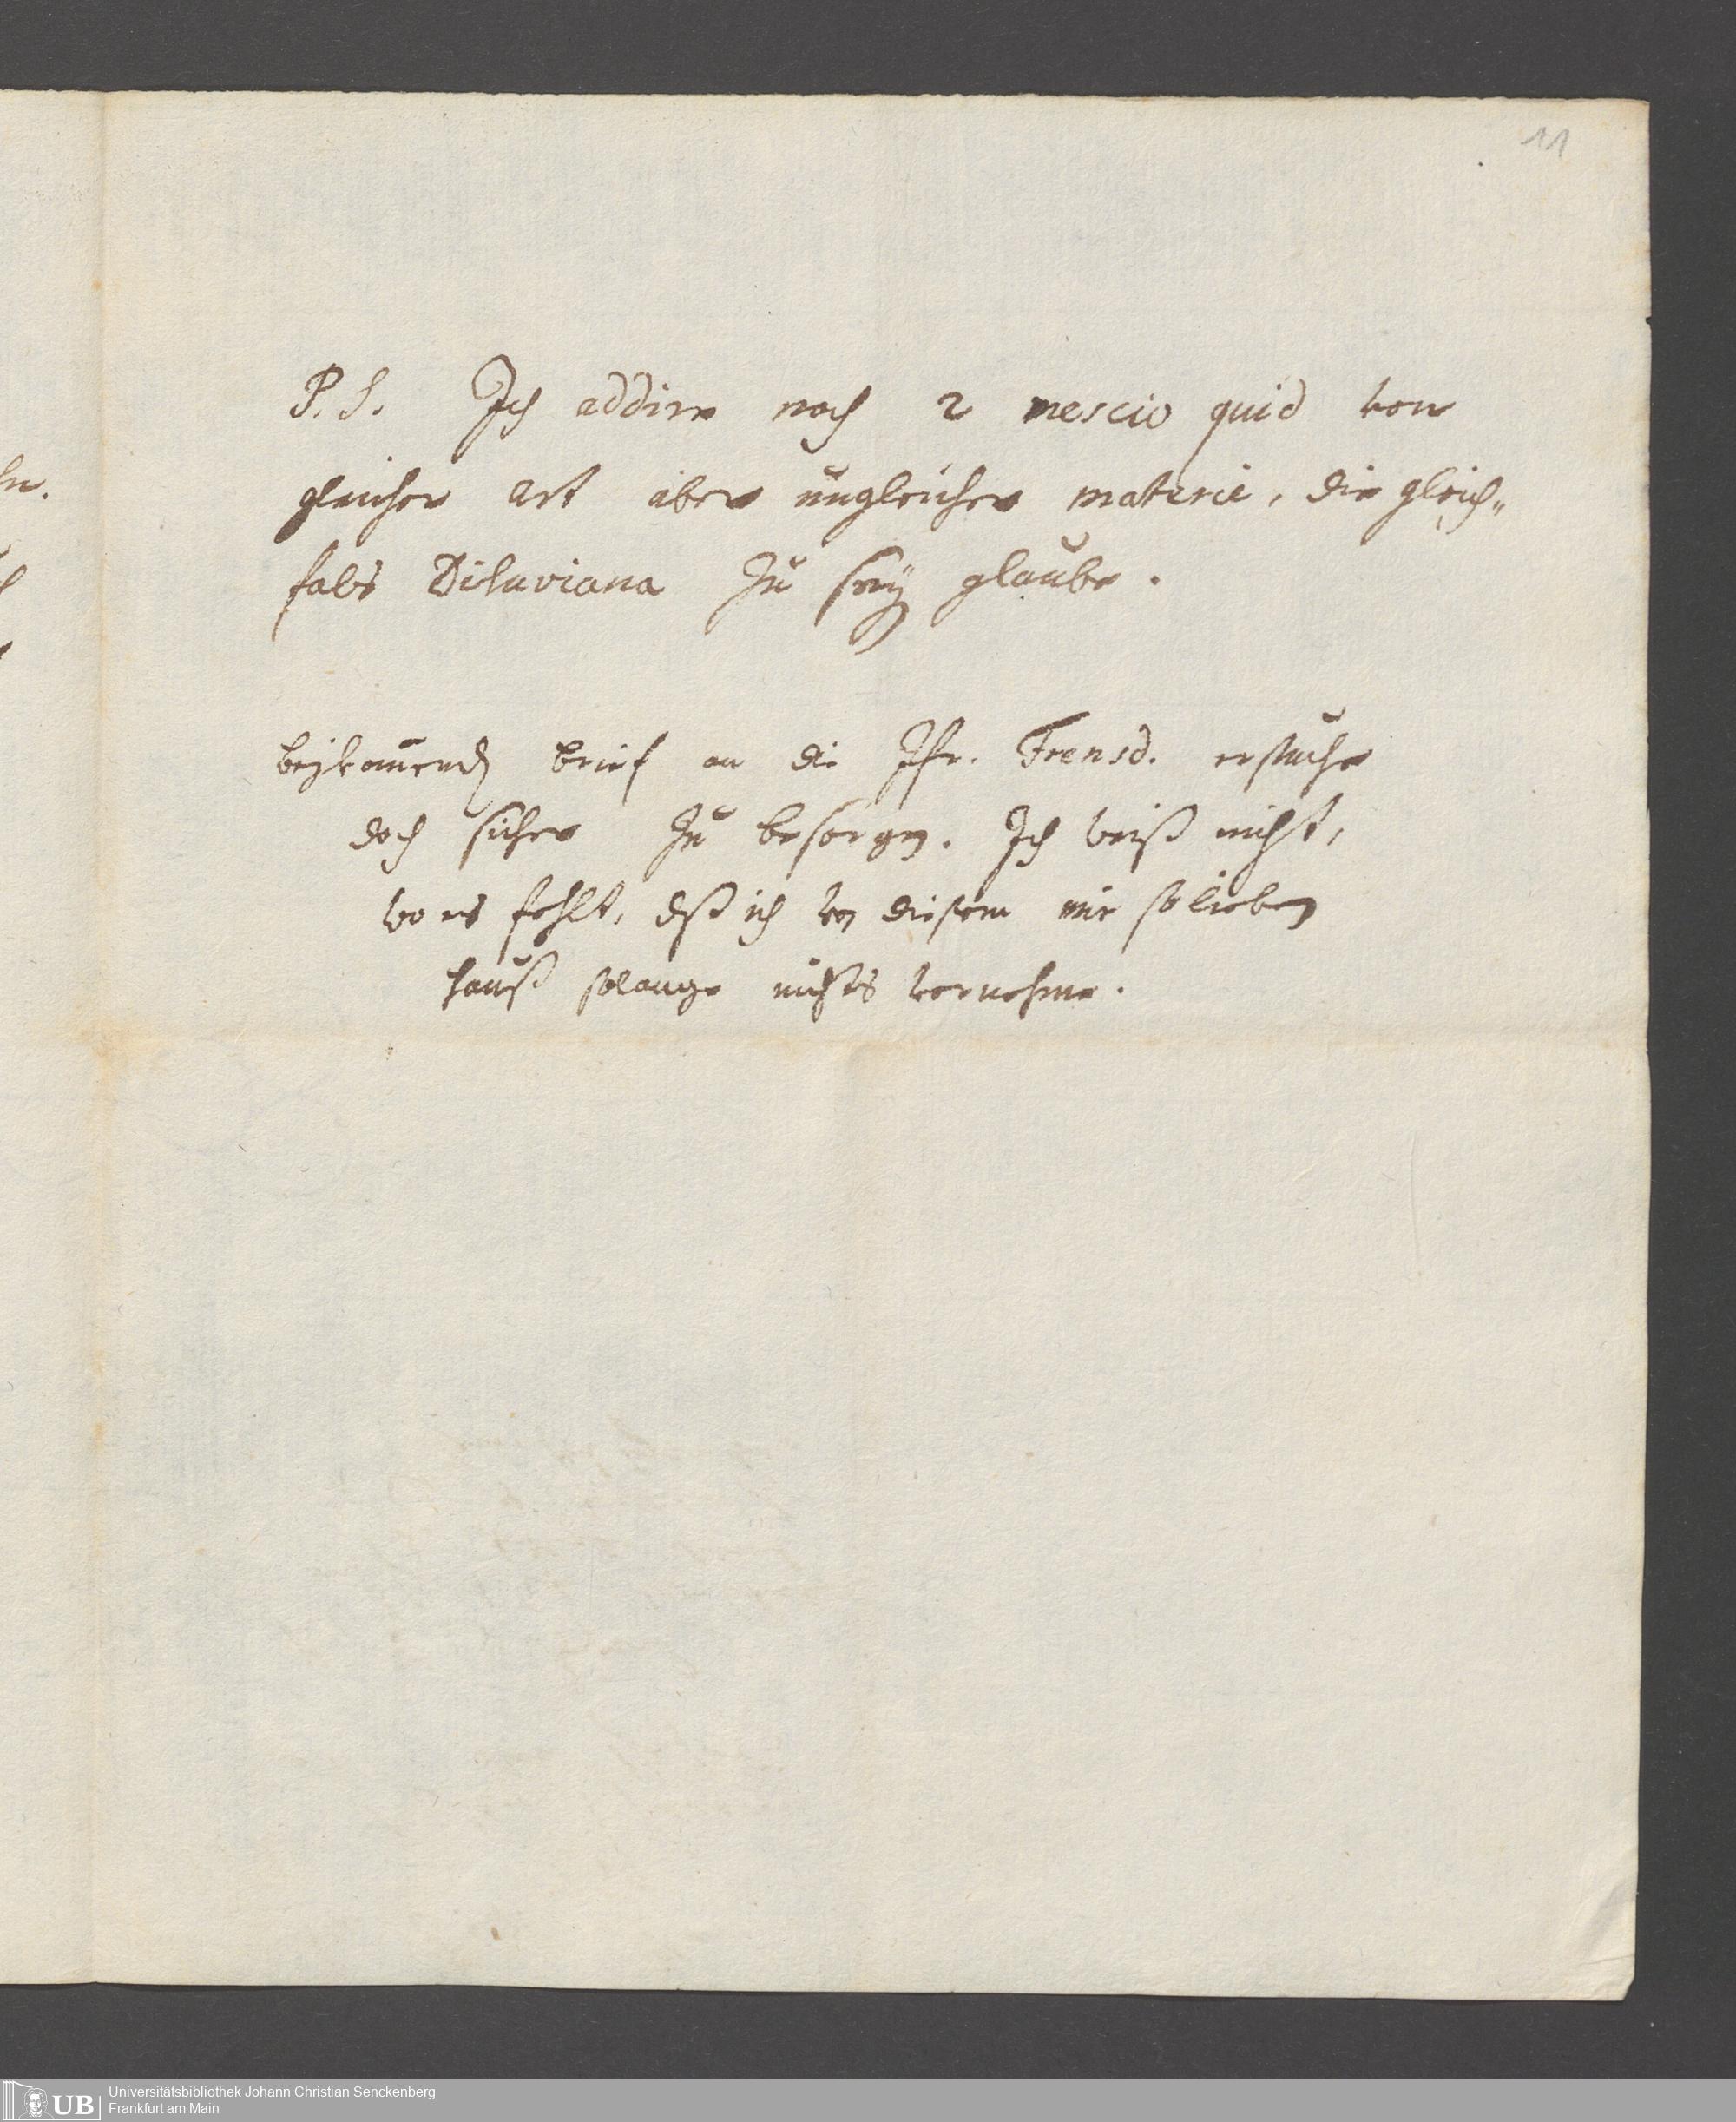 11
P.S. Ich addire noch 2 nescio quid von
gleicher art aber ungleicher materie, die gleich„
fals Diluviana zu seyn glaube.
beykomend brief an die Jfr. Trensd. ersuche
doch sicher zu besorgen. Ich weiß nicht,
wo es fehlt, dß ich von diesem mir so lieben
hauß solange nichts vernehme.
UB Universitätsbibliothek Johann Christian Senckenberg
Frankfurt am Main